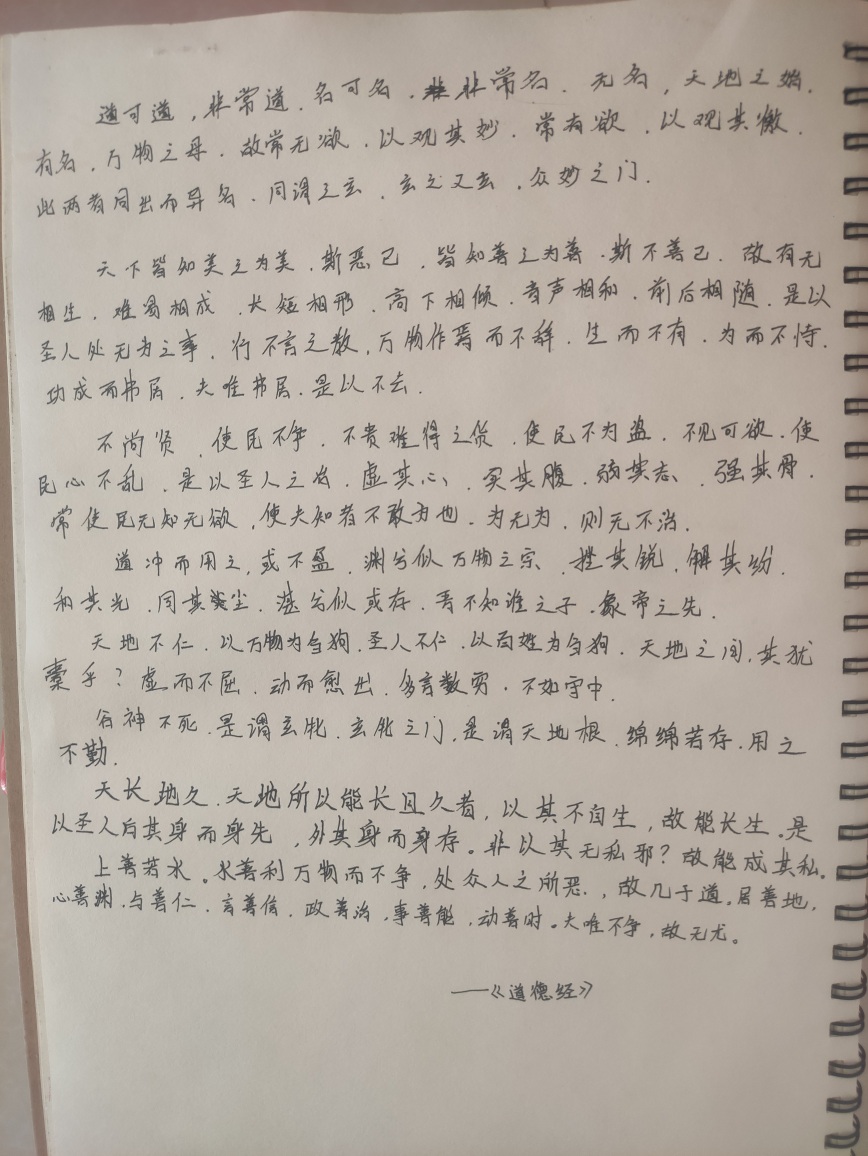 道可道，非常道．名可名，非非常名．无名，天地之始．
有名，万物之母．故常无欲，以观其妙．常有欲，以观其徼．
此两者同出而异名．同谓之玄，玄之又玄，众妙之门．
天下皆知美之为美，斯恶已．皆知善之为善．斯不善已．故有无
相生，难易相成，长短相形，高下相倾，音声相和，前后相随．是以
圣人处无为之事，行不言之教，万物作焉而不辞．生而不有．为而不恃．
功成而弗居，夫唯弗居．是以不去．
不尚贤，使民不争．不贵难得之货，使民不为盗．不见可欲．使
民心不乱，是以圣人之治，虚其心，实其腹，弱其志，强其骨．
常使民无知无欲，使夫知者不敢为也．为无为，则无不治．
道冲而用之，或不盈，渊兮似万物之宗，挫其锐，解其纷．
和其光，同其尘．湛兮似或存．吾不知谁之子，象帝之先．
天地不仁．以万物为刍狗．圣人不仁．以百姓为刍狗．天地之间，其犹
橐乎？虚而不屈．动而愈出．多言数穷．不如守中．
谷神不死．是谓玄牝．玄牝之门，是谓天地根．绵绵若存．用之
不勤．
天长地久．天地所以能长且久者，以其不自生，故能长生。是
以圣人后其身而身先，外其身而身存。非以其无私邪？故能成其私。
上善若水。水善利万物而不争，处众人之所恶，故几于道。居善地，
心善渊．与善仁．言善信．政善治，事善能，动善时。夫唯不争，故无尤。
——《道德经》